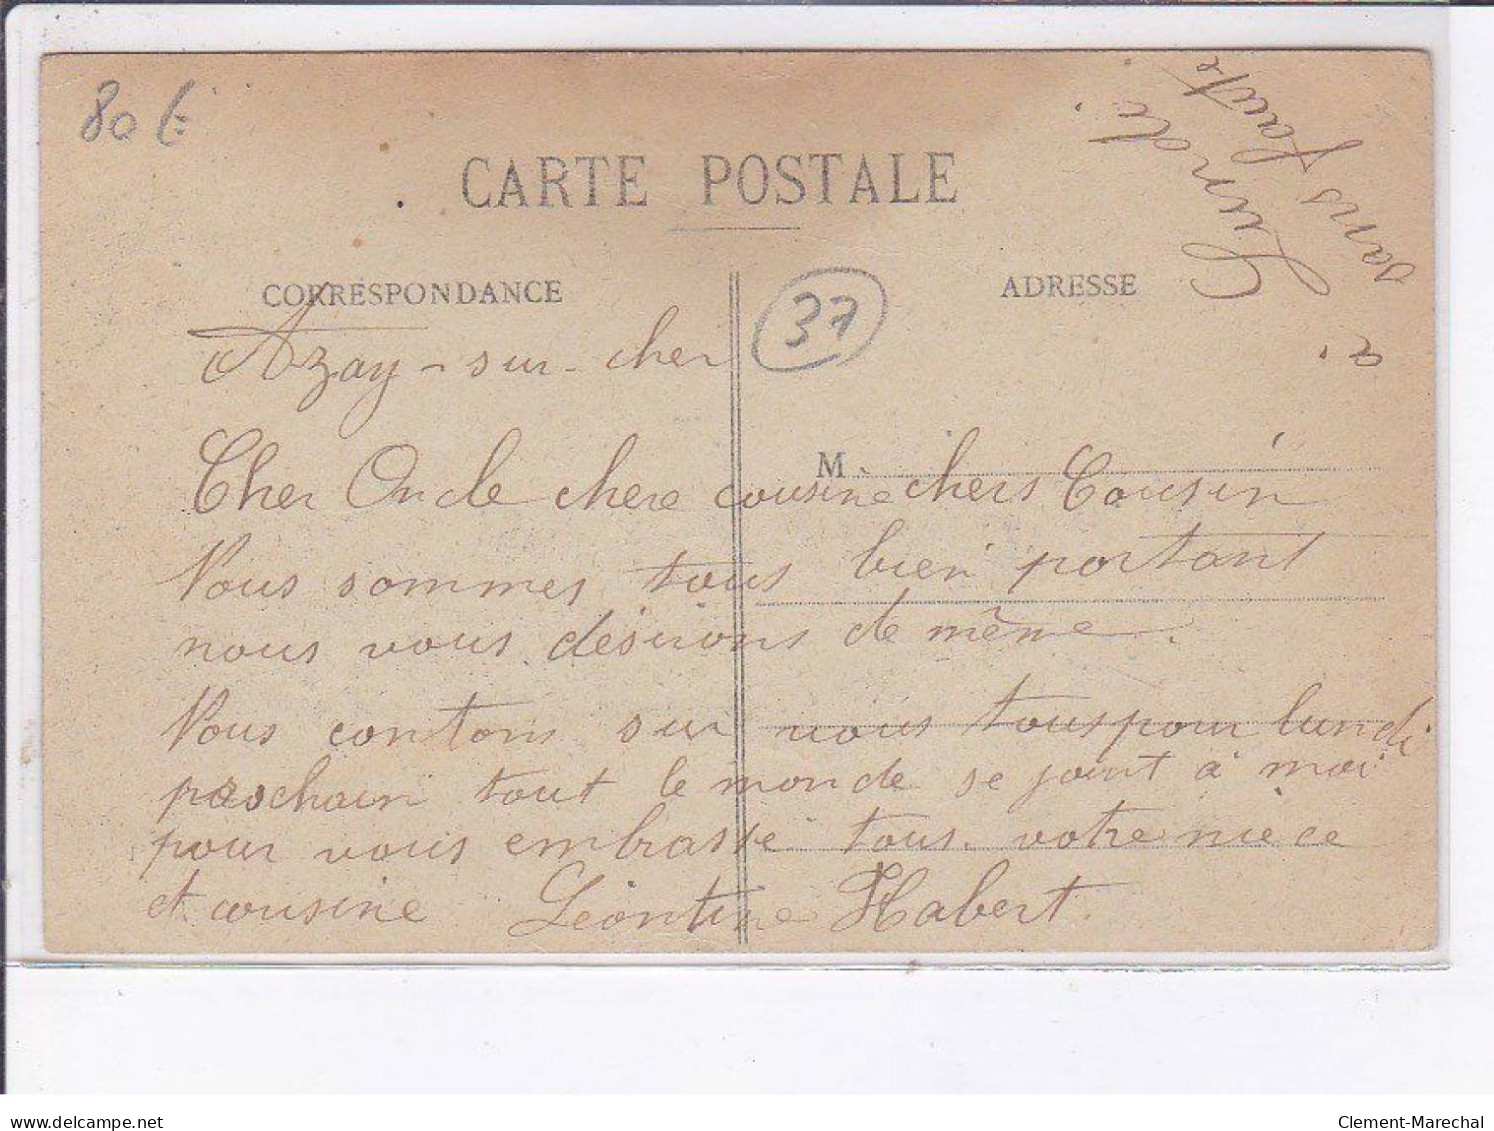 80 €
CARTE POSTALE
CORRESPONDANCE
ADRESSE
37
à Lundi
sans faute
Azay-sur-cher
M.
Cher Oncle chere cousine chers Cousin
Nous sommes tous bien portant
nous vous désirons de même.
Nous contons sur vous tous pour lundi
prochain tout le monde se joint à moi
pour vous embrasse tous. votre niece
et cousine Léontine Habert.
delcampe.net
Clement-Marechal